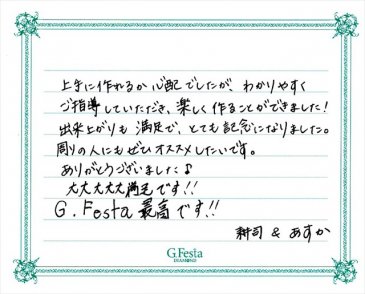 上手に作れるか心配でしたが、わかりやすく
ご指導していただき、楽しく作ることができました!
出来上がりも満足で、とても記念になりました。
周りの人にもぜひオススメしたいです。
ありがとうございました♪
大大大大大満足です!!
G.Festa 最高です!!
耕司 & あすか
G.Festa
DIAMOND